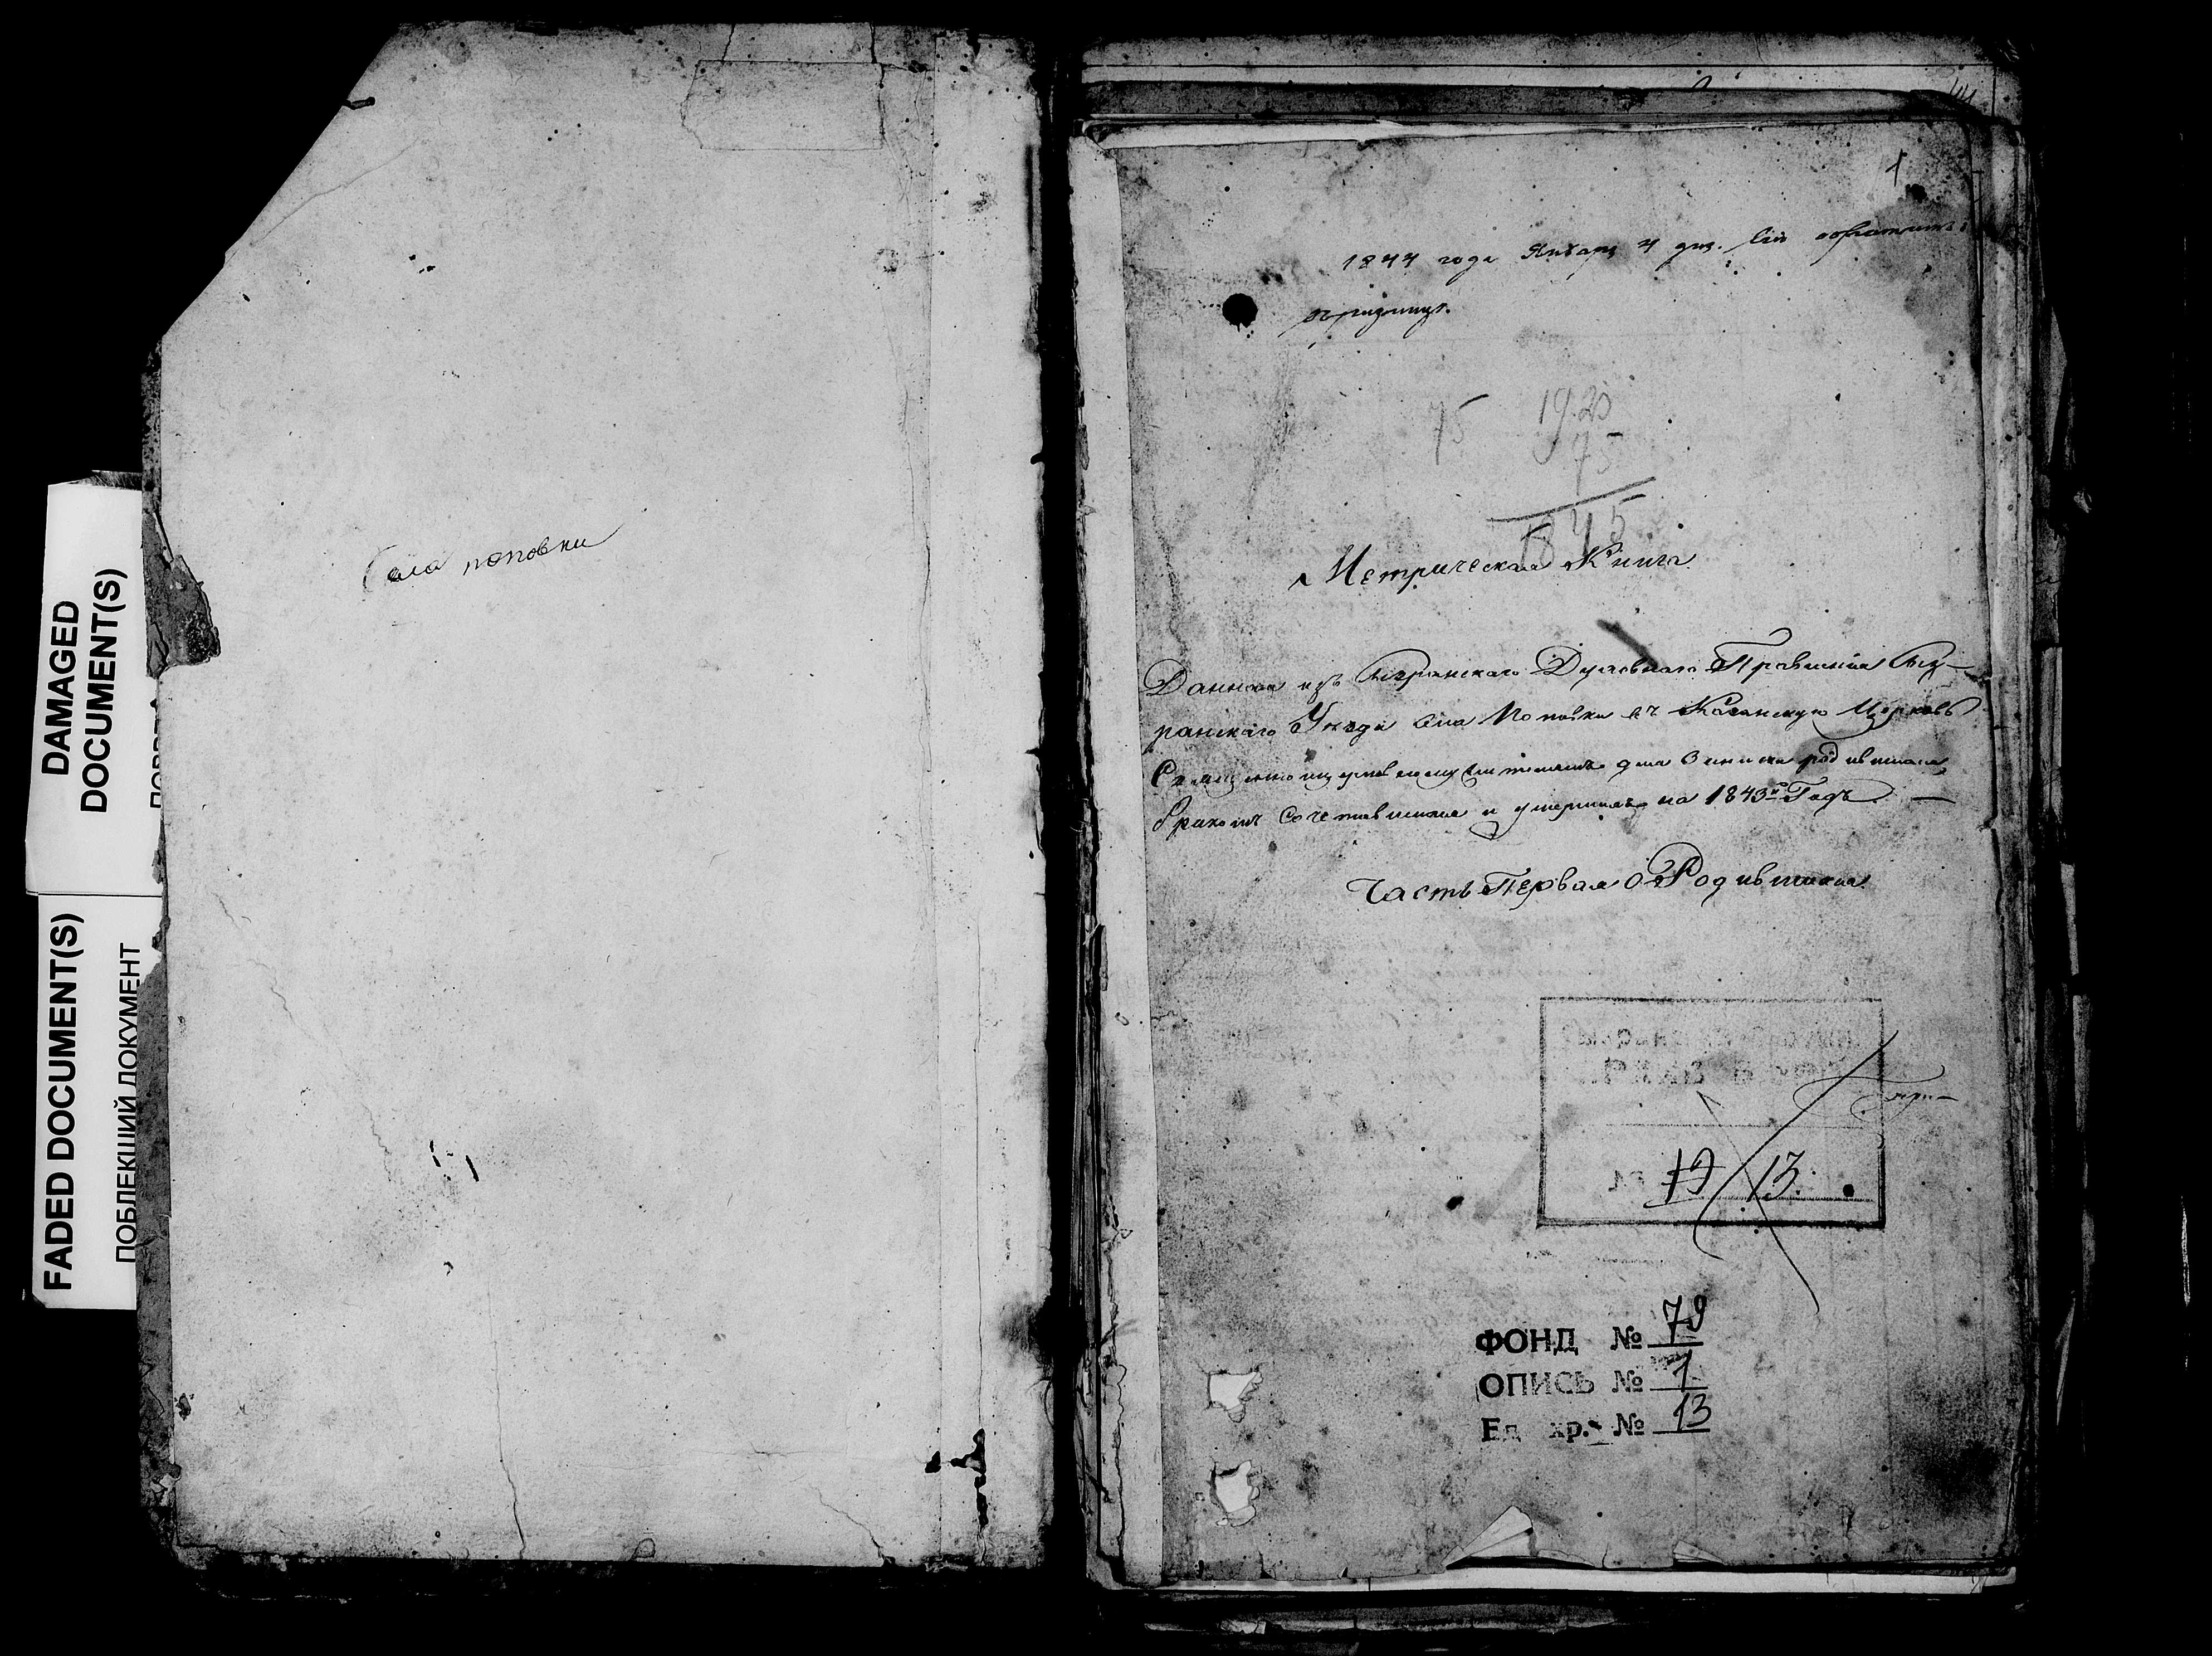 DAMAGED
DOCUMENT(S)
FADED DOCUMENT(S)
ПОБЛЕКШИЙ ДОКУМЕНТ
Села поповки
1
1844 года Января 4 дня. Сiи
въ ризницу.
75 1920
75
1845
Метрическая Книга
Данная изъ Сызранскаго Духовнаго Правленiя Сыз-
ранскаго Уезда Села Поповки въ Казанскую Церковь
Священноцерковнослужителямъ для записки родившихся
бракомъ сочетавшихся и умершихъ на 1843й Годъ. —
Часть Первая О Родившихся
№ 19 13.
ФОНД № 79
ОПИСЬ № 1
Ед хр. № 13